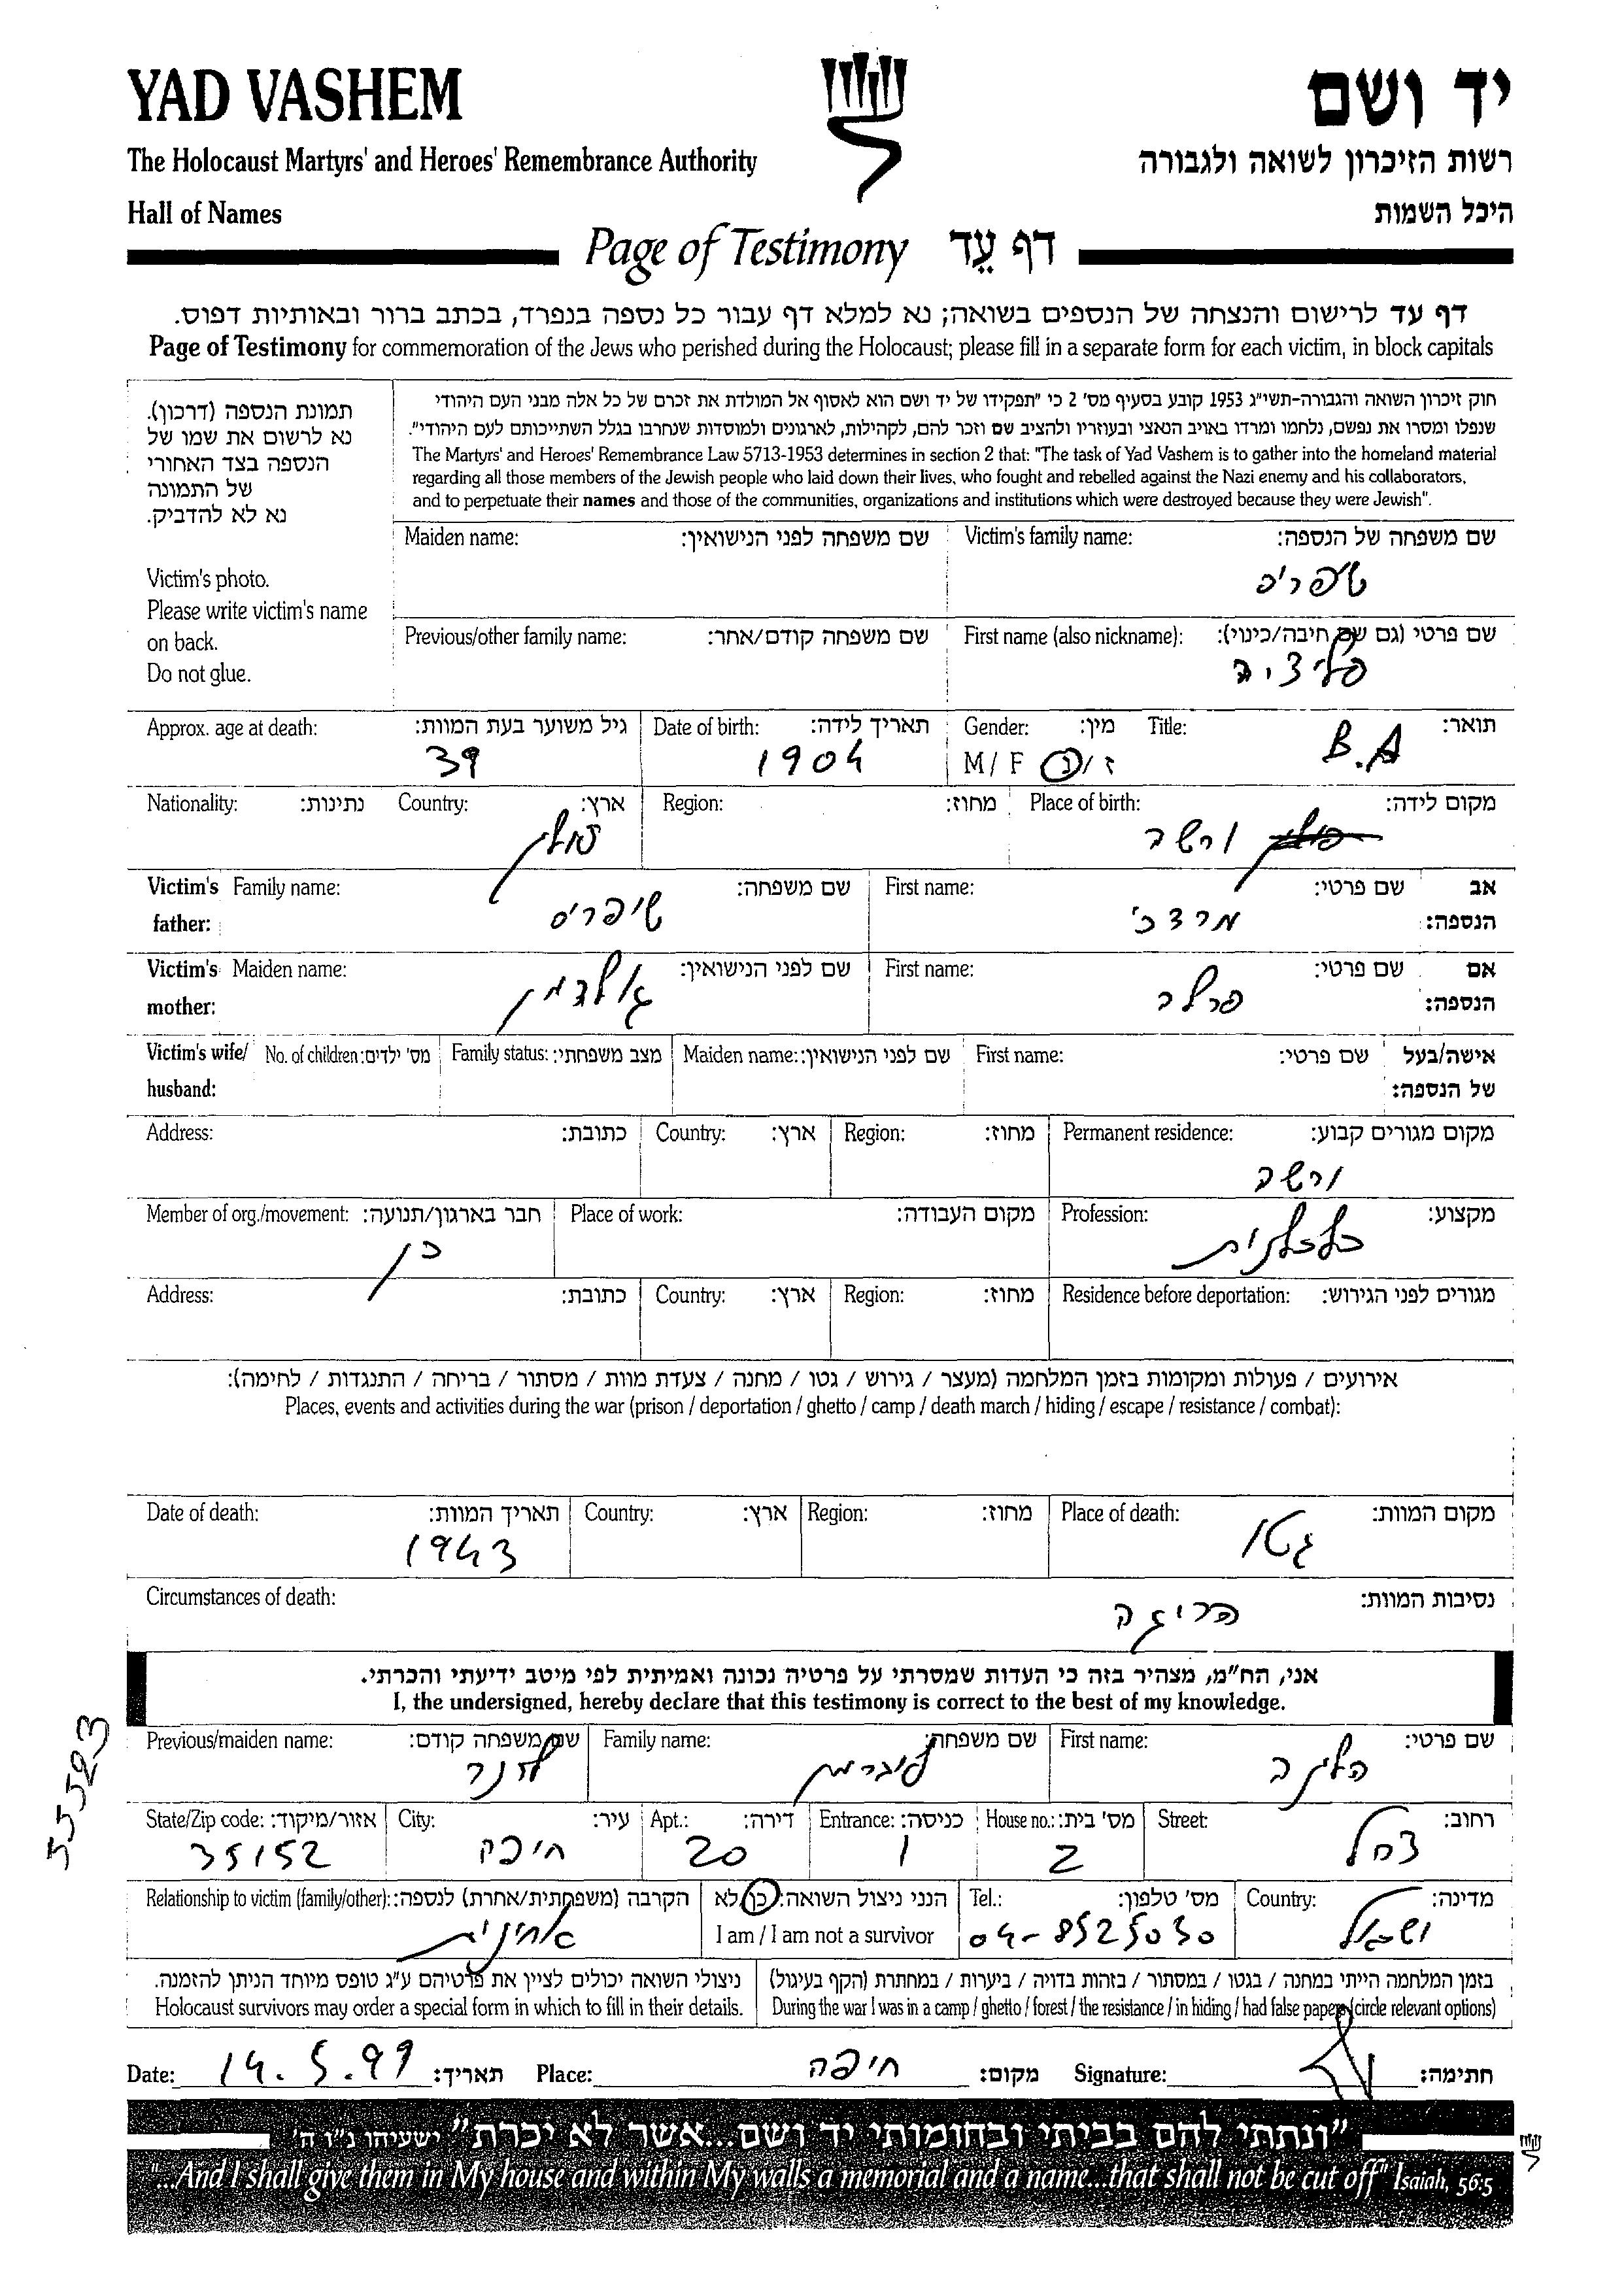 YAD VASHEM
יד ושם
The Holocaust Martyrs' and Heroes' Remembrance Authority
רשות הזיכרון לשואה ולגבורה
Hall of Names
היכל השמות
Page of Testimony דף עֵד
דף עד לרישום והנצחה של הנספים בשואה; נא למלא דף עבור כל נספה בנפרד, בכתב ברור ובאותיות דפוס.
Page of Testimony for commemoration of the Jews who perished during the Holocaust; please fill in a separate form for each victim, in block capitals
תמונת הנספה (דרכון).
נא לרשום את שמו של
הנספה בצד האחורי
של התמונה
נא לא להדביק.
Victim's photo.
Please write victim's name
on back.
Do not glue.
חוק זיכרון השואה והגבורה-תשי"ג 1953 קובע בסעיף מס' 2 כי "תפקידו של יד ושם הוא לאסוף אל המולדת את זכרם של כל אלה מבני העם היהודי
שנפלו ומסרו את נפשם, נלחמו ומרדו באויב הנאצי ובעוזריו ולהציב שם וזכר להם, לקהילות, לארגונים ולמוסדות שנחרבו בגלל השתייכותם לעם היהודי".
The Martyrs' and Heroes' Remembrance Law 5713-1953 determines in section 2 that: "The task of Yad Vashem is to gather into the homeland material
regarding all those members of the Jewish people who laid down their lives, who fought and rebelled against the Nazi enemy and his collaborators,
and to perpetuate their names and those of the communities, organizations and institutions which were destroyed because they were Jewish".
Maiden name: שם משפחה לפני הנישואין: Victim's family name: שם משפחה של הנספה:
שפריס
Previous/other family name: שם משפחה קודם/אחר: First name (also nickname): שם פרטי (גם שם חיבה/כינוי):
פליציה
Approx. age at death: גיל משוער בעת המוות: Date of birth: תאריך לידה: Gender: מין: Title: תואר:
39 1904 M / F ז / נ B.A
Nationality: נתינות: Country: ארץ: Region: מחוז: Place of birth: מקום לידה:
פולין ורשה
Victim's father: Family name: שם משפחה: First name: שם פרטי: אב הנספה:
שיפריס מרדכי
Victim's mother: Maiden name: שם לפני הנישואין: First name: שם פרטי: אם הנספה:
גולדמן פרלה
Victim's wife/ husband: No. of children: מס' ילדים: Family status: מצב משפחתי: Maiden name: שם לפני הנישואין: First name: שם פרטי: אישה/בעל של הנספה:
Address: כתובת: Country: ארץ: Region: מחוז: Permanent residence: מקום מגורים קבוע:
ורשה
Member of org./movement: חבר בארגון/תנועה: Place of work: מקום העבודה: Profession: מקצוע:
כן כלכלנית
Address: כתובת: Country: ארץ: Region: מחוז: Residence before deportation: מגורים לפני הגירוש:
אירועים / פעולות ומקומות בזמן המלחמה (מעצר / גירוש / גטו / מחנה / צעדת מוות / מסתור / בריחה / התנגדות / לחימה):
Places, events and activities during the war (prison / deportation / ghetto / camp / death march / hiding / escape / resistance / combat):
Date of death: תאריך המוות: Country: ארץ: Region: מחוז: Place of death: מקום המוות:
1943 גטו
Circumstances of death: נסיבות המוות:
הריגה
אני, הח"מ, מצהיר בזה כי העדות שמסרתי על פרטיה נכונה ואמיתית לפי מיטב ידיעתי והכרתי.
I, the undersigned, hereby declare that this testimony is correct to the best of my knowledge.
Previous/maiden name: שם משפחה קודם: Family name: שם משפחה: First name: שם פרטי:
לזנר ליברמן הלינה
State/Zip code: אזור/מיקוד: City: עיר: Apt.: דירה: Entrance: כניסה: House no.: מס' בית: Street: רחוב:
35152 חיפה 20 1 2 צהל
Relationship to victim (family/other): הקרבה (משפחתית/אחרת) לנספה: הנני ניצול השואה: כן/לא Tel.: מס' טלפון: Country: מדינה:
אחינית I am / I am not a survivor 04-8525030 ישראל
ניצולי השואה יכולים לציין את פרטיהם ע"ג טופס מיוחד הניתן להזמנה.
Holocaust survivors may order a special form in which to fill in their details.
בזמן המלחמה הייתי במחנה / בגטו / במסתור / בזהות בדויה / ביערות / במחתרת (הקף בעיגול)
During the war I was in a camp / ghetto / forest / the resistance / in hiding / had false papers (circle relevant options)
Date: 14.5.99 תאריך: Place: חיפה מקום: Signature: חתימה:
"ונתתי להם בביתי ובחומותי יד ושם...אשר לא יכרת" ישעיהו נ"ו ה'
"...And I shall give them in My house and within My walls a memorial and a name...that shall not be cut off" Isaiah, 56:5
55523